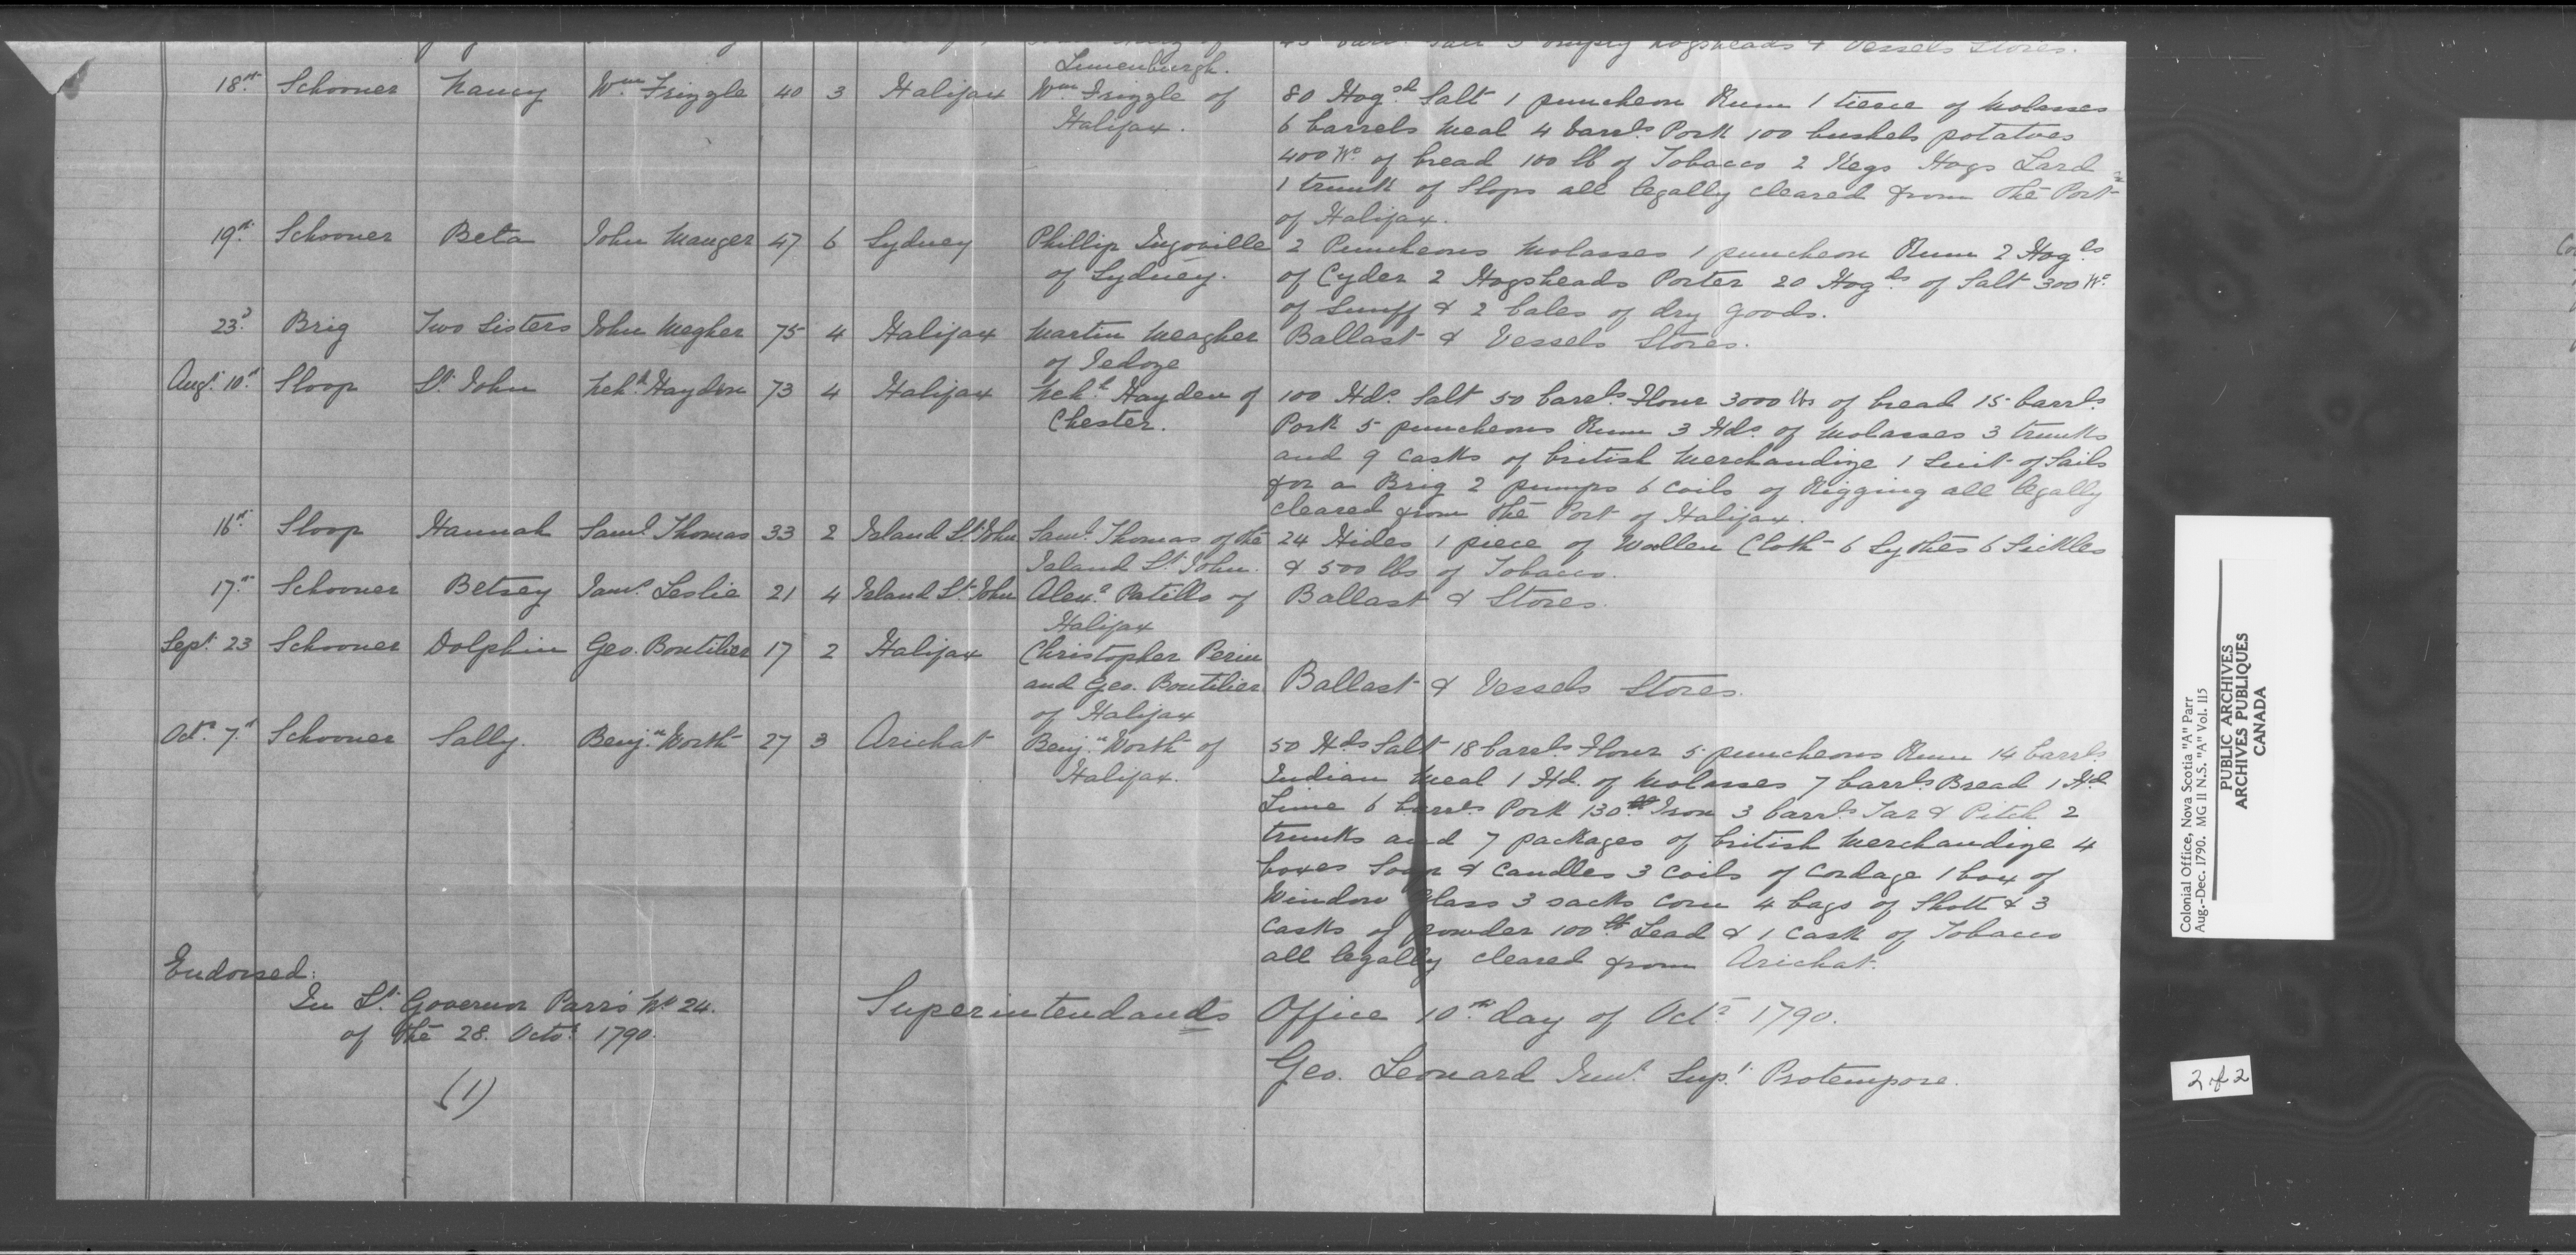 45 barrs Salt 5 empty hogsheads & Vessels Stores.
Lunenburgh.
18th Schooner Nancy Wm Frizzle 40 3 Halifax Wm Frizzle of 80 Hogsd Salt 1 puncheon Rum 1 tierce of Molasses
Halifax. 6 barrels Meal 4 barrls Pork 100 bushels potatoes
400 Wt of bread 100 lb of Tobacco 2 Kegs Hogs Lard
1 trunk of Slops all legally cleared from the Port
of Halifax.
19th Schooner Beta John Mauger 47 6 Sydney Phillip Ingoville 2 Puncheons Molasses 1 puncheon Rum 2 Hogds
of Sydney. of Cyder 2 Hogsheads Porter 20 Hogds of Salt 300 Wt
of Snuff & 2 bales of dry goods.
23d Brig Two Sisters John Megher 75 4 Halifax Martin Meagher Ballast & Vessels Stores.
of Jedoze
Augt 10th Sloop St John Neh. Hayden 73 4 Halifax Neh. Hayden of 100 Hds. Salt 50 barrls Flour 3000 lbs of bread 15 barrls
Chester. Pork 5 puncheons Rum 3 Hds. of Molasses 3 trunks
and 9 casks of british Merchandize 1 Suit of Sails
for a Brig 2 pumps 6 coils of Rigging all legally
cleared from the Port of Halifax.
16th Sloop Hannah Saml Thomas 33 2 Island St John Saml Thomas of the 24 Hides 1 piece of Wollen Cloth 6 Sythes 6 Sickles
Island St John. & 500 lbs of Tobacco.
17th Schooner Betsey Jams Leslie 21 4 Island St John Alexr Patillo of Ballast & Stores.
Halifax
Sept. 23 Schooner Dolphin Geo. Boutilier 17 2 Halifax Christopher Perin
and Geo. Boutilier Ballast & Vessels Stores.
of Halifax
Octr 7th Schooner Sally. Benjn Worth 27 3 Arichat Benjn Worth of 50 Hds Salt 18 barrls Flour 5 puncheons Rum 14 barrls
Halifax. Indian Meal 1 Hd. of Molasses 7 barrls Bread 1 Hd
Lime 6 barrls Pork 130 lb Iron 3 barrls Tar & Pitch 2
trunks and 7 packages of british Merchandize 4
boxes Soap & Candles 3 coils of Cordage 1 box of
Window Glass 3 sacks Corn 4 bags of Shott & 3
Casks of powder 100 lb Lead & 1 Cask of Tobacco
all legally cleared from Arichat.
Endorsed:
In Lt Governor Parrs No 24.
of the 28. Octor 1790.
(1)
Superintendants Office 10th day of Octr 1790.
Geo. Leonard Junr Supt Protempore.
Colonial Office, Nova Scotia "A" Parr
Aug.-Dec. 1790. MG 11 N.S. "A" Vol. 115
PUBLIC ARCHIVES
ARCHIVES PUBLIQUES
CANADA
2 of 2